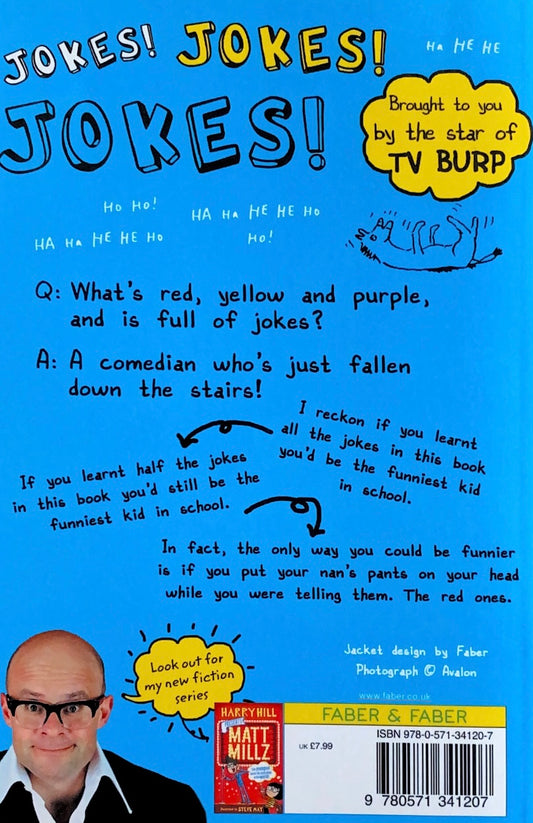 JOKES! JOKES!
Ha HE HE
JOKES!
Brought to you
by the star of
TV BURP
Ho Ho!
HA Ha HE HE Ho
HA Ha HE HE Ho
Ho!
Q: What's red, yellow and purple,
and is full of jokes?
A: A comedian who's just fallen
down the stairs!
I reckon if you learnt
all the jokes in this book
you'd be the funniest kid
in school.
If you learnt half the jokes
in this book you'd still be the
funniest kid in school.
In fact, the only way you could be funnier
is if you put your nan's pants on your head
while you were telling them. The red ones.
Look out for
my new fiction
series
Jacket design by Faber
Photograph © Avalon
www.faber.co.uk
FABER & FABER
HARRY HILL
MATT
MILLZ
Illustrated by STEVE MAY
UK £7.99
ISBN 978-0-571-34120-7
9 780571 341207